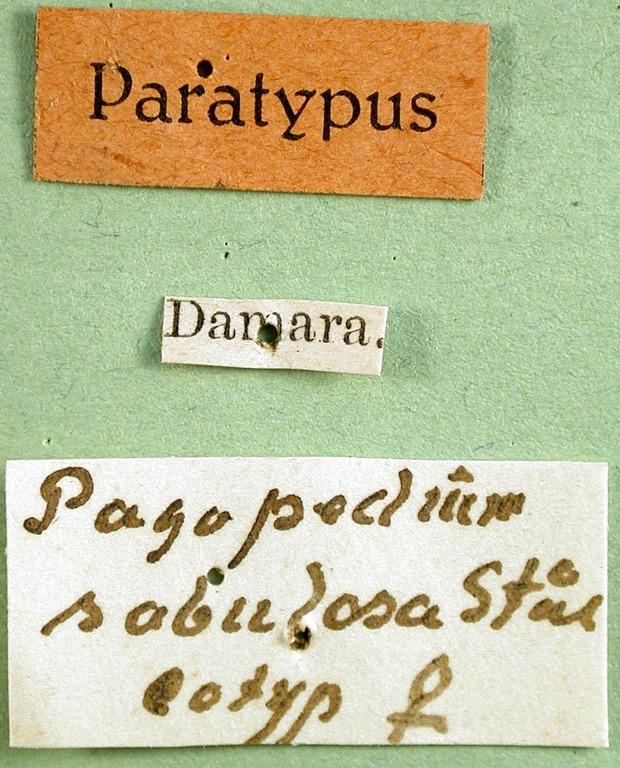 Paratypus
Damara.
Pagopedium
sabulosa Stål
cotyp ♀